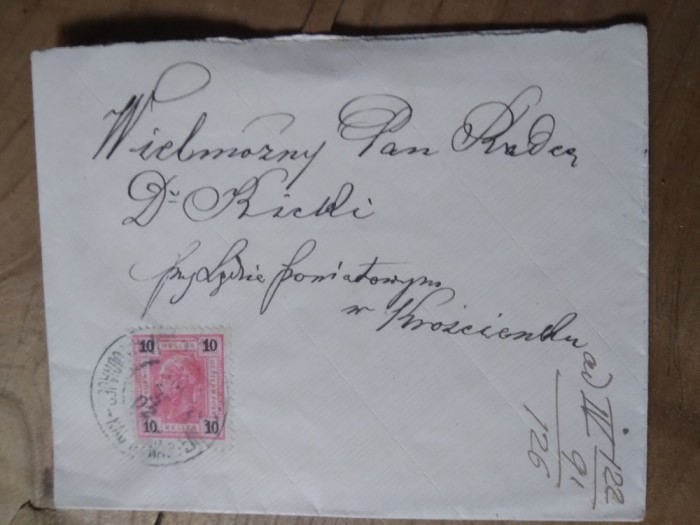 Wielmożny Pan Radca
Dr Kicki
przy Sądzie powiatowym
w Krościenku
10 10
10 10
ad IV 122
91
126